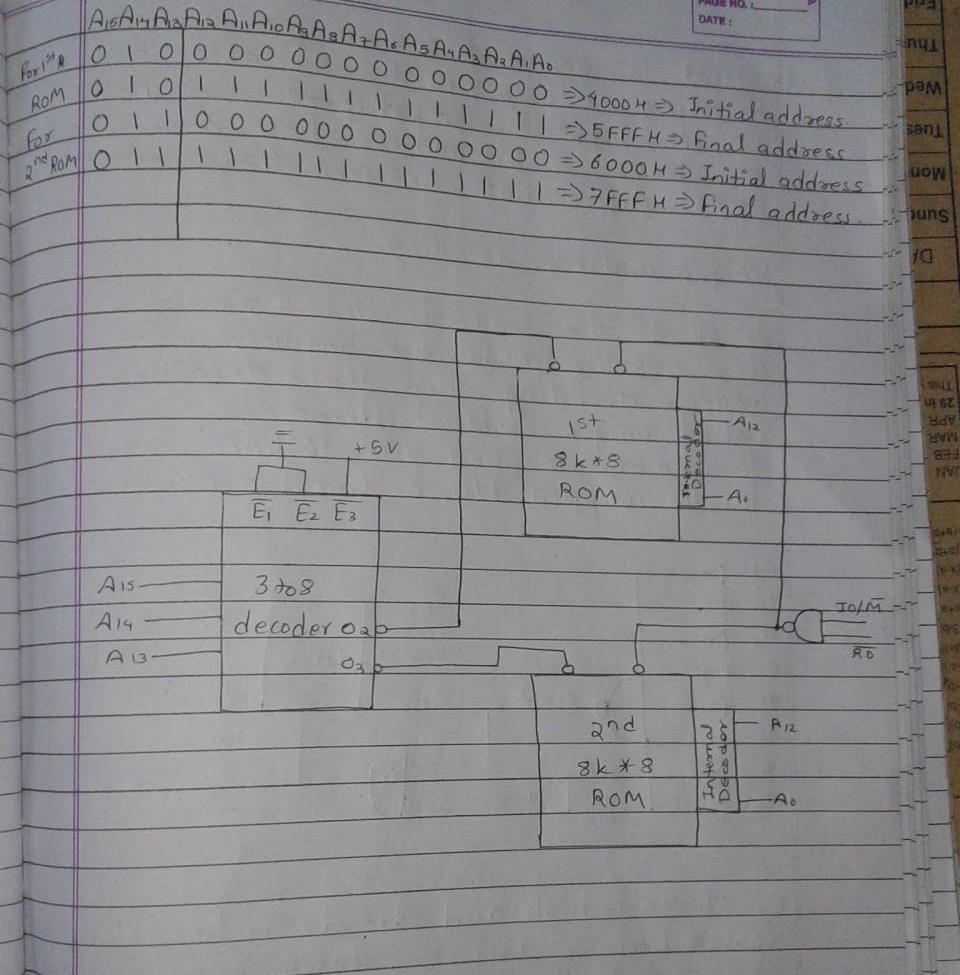 PAGE NO.:
DATE:
A15 A14 A13 A12 A11 A10 A9 A8 A7 A6 A5 A4 A3 A2 A1 A0
For 1st
ROM
0 1 0 0 0 0 0 0 0 0 0 0 0 0 0 0 ⇒ 4000H ⇒ Initial address.
0 1 0 1 1 1 1 1 1 1 1 1 1 1 1 1 ⇒ 5FFFH ⇒ final address
For
2nd ROM
0 1 1 0 0 0 0 0 0 0 0 0 0 0 0 0 ⇒ 6000H ⇒ Initial address
0 1 1 1 1 1 1 1 1 1 1 1 1 1 1 1 ⇒ 7FFFH ⇒ final address.
1st
8k*8
ROM
Internal
Decoder
A12
A0
+5V
E̅1 E̅2 E̅3
A15
A14
A13
3 to 8
decoder O2
O3
IO/M̅
R̅D̅
2nd
8k*8
ROM
Internal
Decoder
A12
A0
Thu
Wed
Tues
Mon
Sund
29 in
APR
MAR
FEB
JAN